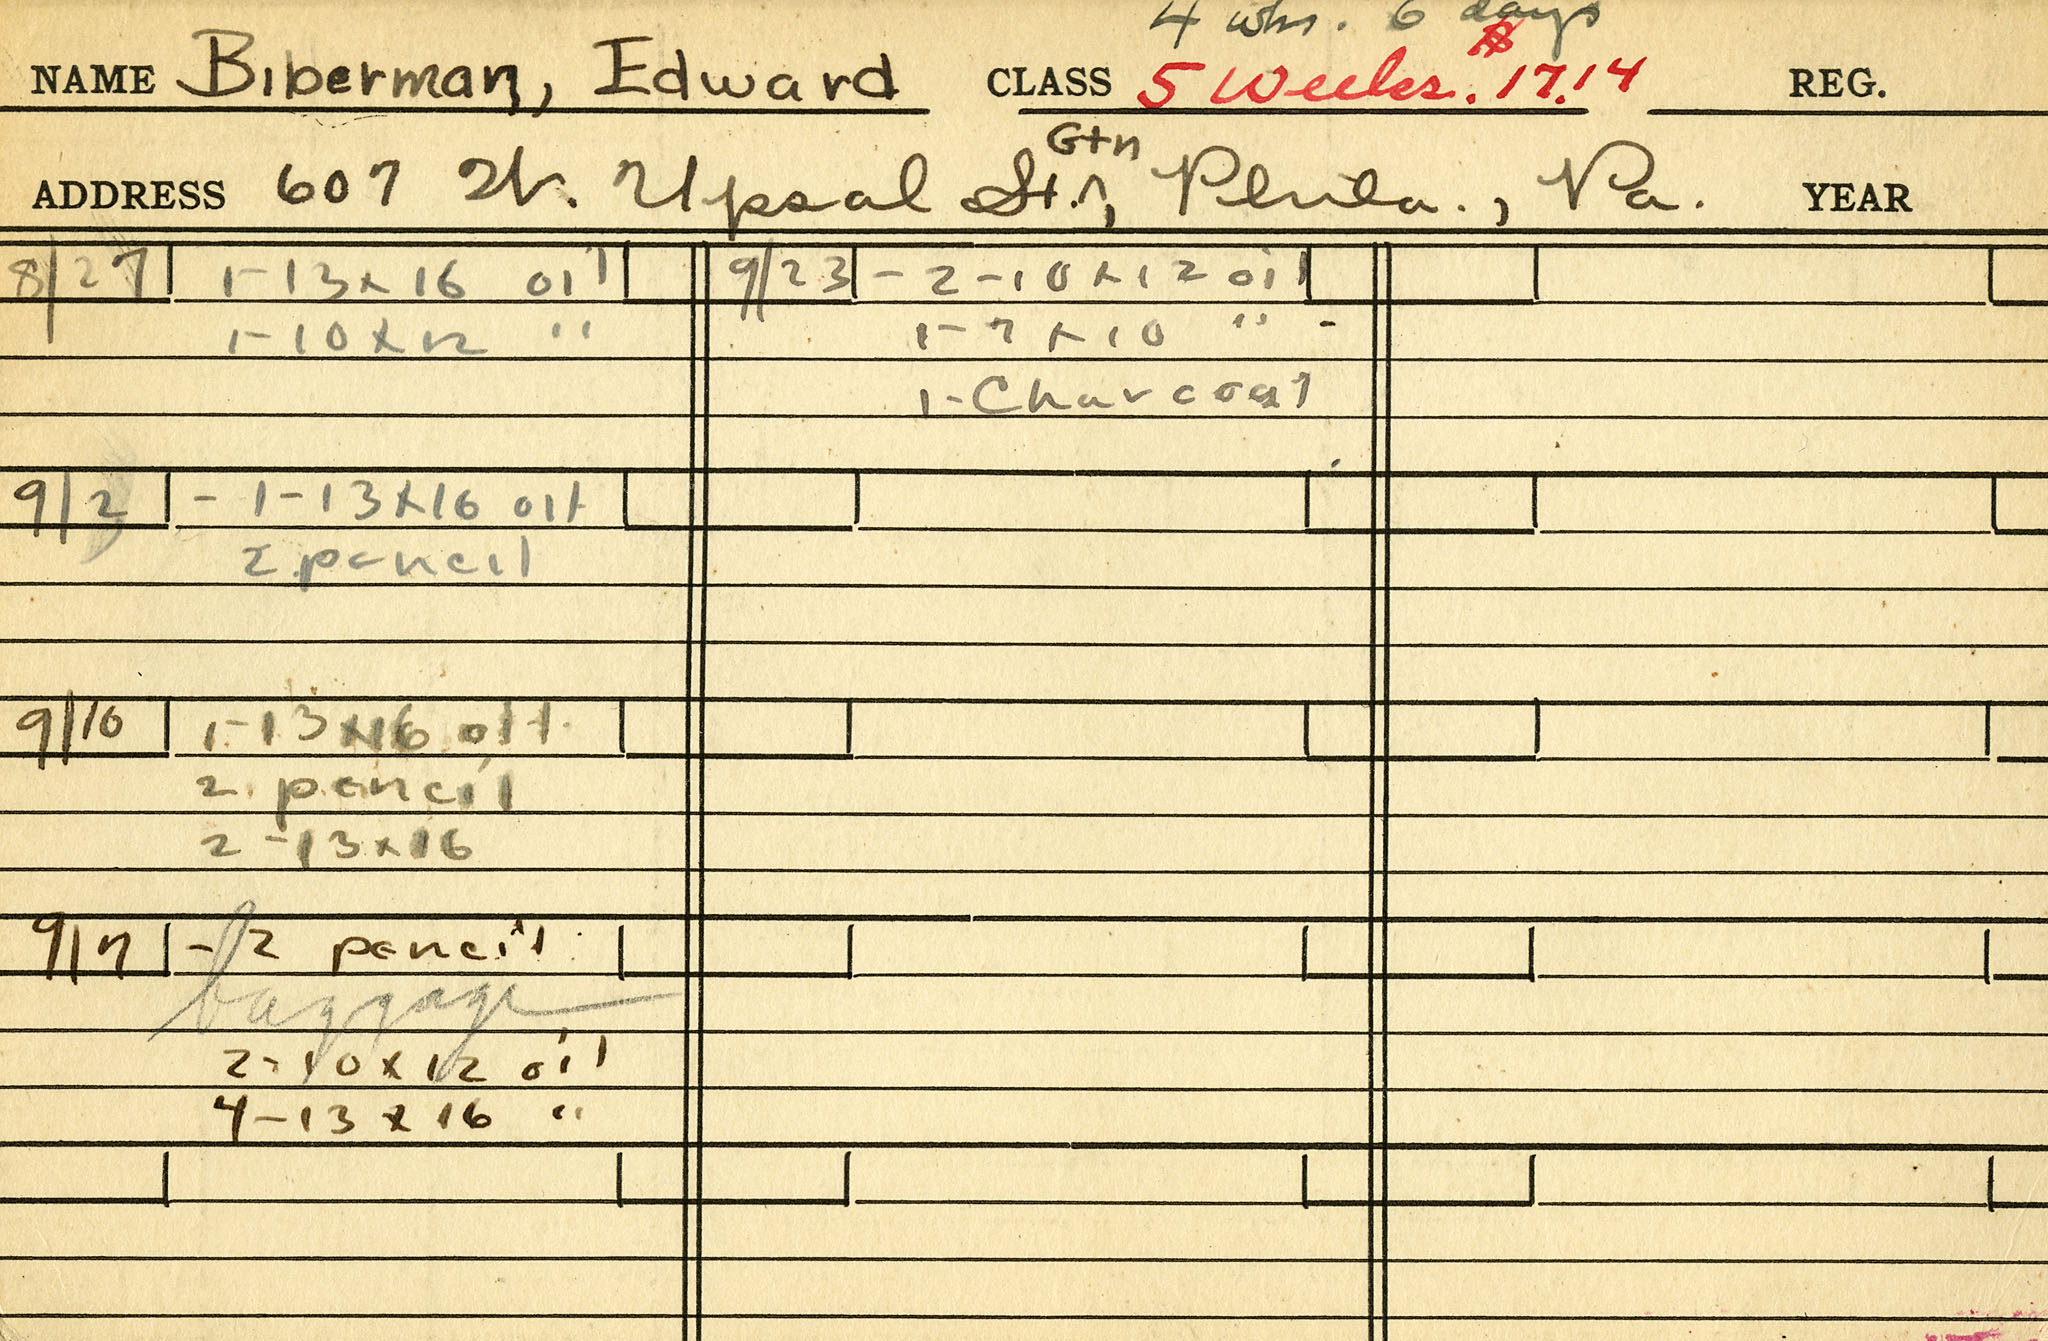 4 wks. 6 days
NAME Biberman, Edward CLASS 5 Weeks. $17.14 REG.
Gtn
ADDRESS 607 W. Upsal St., Phila., Pa. YEAR
8/27 1-13x16 oil
1-10x12 "
9/2 - 1-13x16 oil
2 pencil
9/10 1-13x16 oil
2 pencil
2-13x16
9/17 - 2 pencil
baggage
2-10x12 oil
4-13x16 "
9/23 - 2-10x12 oil
1-7x10 "
1-Charcoal